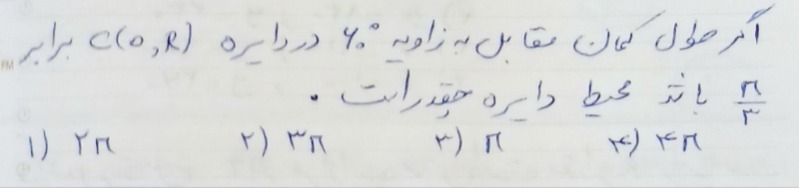 اگر طول کمان مقابل به زاویه ۶۰° در دایره C(O,R) برابر
π/۳ باشد محیط دایره چقدر است .
۱) ۲π ۲) ۳π ۳) π ۴) ۴π